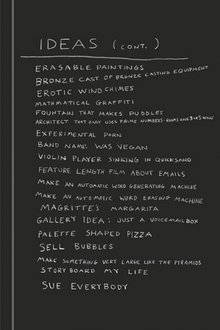 IDEAS (CONT.)
ERASABLE PAINTINGS
BRONZE CAST OF BRONZE CASTING EQUIPMENT
EROTIC WIND CHIMES
MATHMATICAL GRAFFITI
FOUNTAIN THAT MAKES PUDDLES
ARCHITECT THAT ONLY USES PRIME NUMBERS -
EXPERIMENTAL PORN
BAND NAME: WAS VEGAN
VIOLIN PLAYER SINKING IN QUICKSAND
FEATURE LENGTH FILM ABOUT EMAILS
MAKE AN AUTOMATIC WORD GENERATING MACHINE
MAKE AN AUTOMATIC WORD ERASING MACHINE
MAGRITTE'S MARGARITA
GALLERY IDEA: JUST A VOICEMAILBOX
PALETTE SHAPED PIZZA
SELL BUBBLES
MAKE SOMETHING VERY LARGE LIKE THE PYRAMIDS
STORYBOARD MY LIFE
SUE EVERYBODY